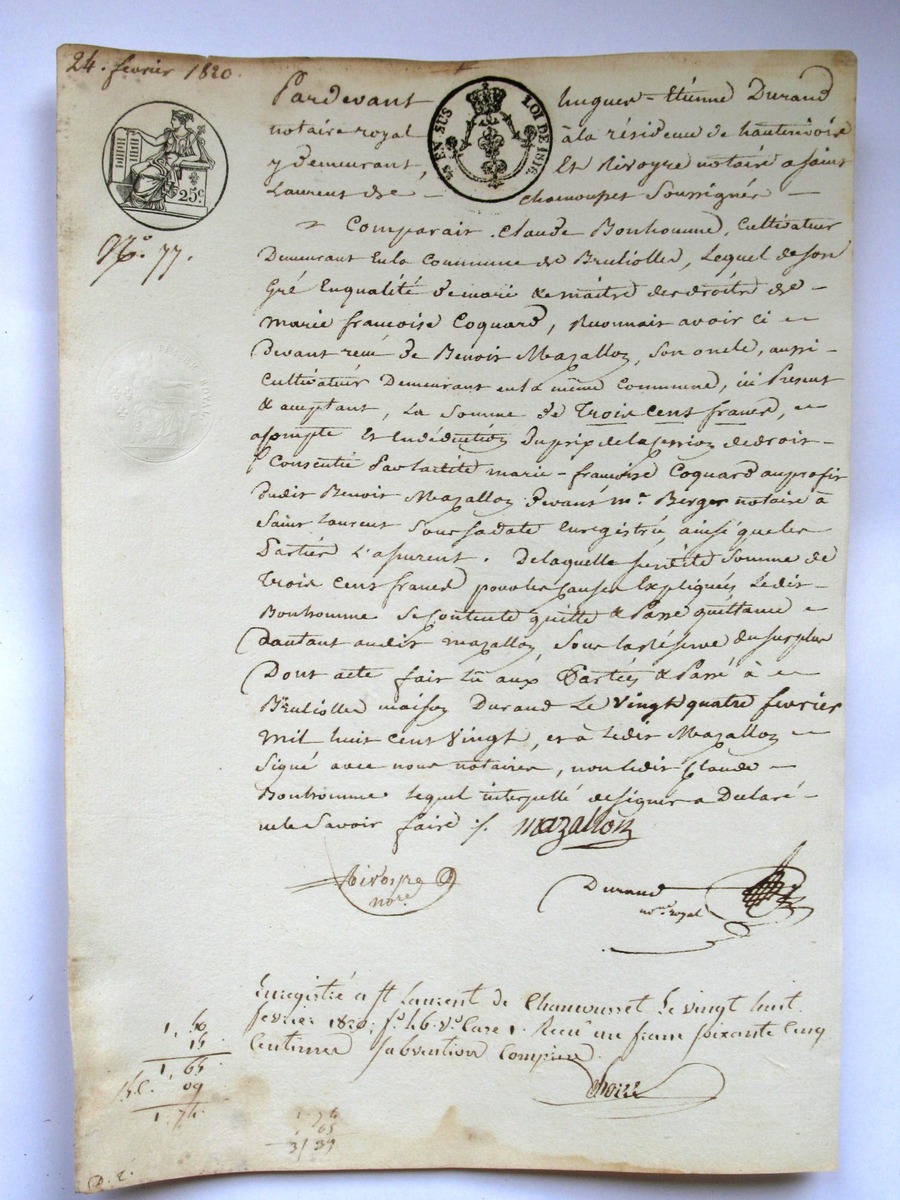 24. fevrier 1820.
Pardevant hugues - Etienne Durand
notaire royal à la résidence de hauterivoire
y demeurant, Et Rivoyre notaire a saint
Laurent de - chamousset Soussignés -
EN SUS LOI DE 1816.
25c.
No. 77.
Comparait Claude Bonhomme, Cultivateur
Demeurant En la Commune de Bruliolles, Lequel de son
Gré En qualité de mari & maitre des droits de -
marie françoise Coquard, Reconnait avoir ci -
Devant recu de Benoit Mazallon, son oncle, aussi
Cultivateur Demeurant en la même Commune, ici Present
& acceptant, La Somme de Trois cent francs, -
acompte Et En déduction Du prix de la cession de droit -
Consentie Par ladite marie - françoise Coquard au profit
dudit Benoit Mazallon devant me. Berger notaire à
Saint Laurent Sous sa date Enregistrée, ainsi que les
Parties L'assurent. De laquelle susdite Somme de
Trois cent francs pour les Causes Expliquées Ledit -
Bonhomme se Contente quitte & Passe quittance -
d'autant audit Mazallon, Sous la réserve du surplus
Dont acte fait Lu aux Parties & Passé à -
Bruliolles maison Durand Le vingt quatre fevrier
mil huit cent vingt, et a Ledit Mazallon -
Signé avec nous notaires, non Ledit Claude -
Bonhomme Lequel interpellé de signer a Déclaré -
ne le Savoir faire ./. mazallon
Rivoyre
nore.
Durand
nore royal
Enregistré a St Laurent de Chamousset Le vingt huit
fevrier 1820, fo. 46. Vo. Case 1. Recu un franc soixante Cinq
Centimes subvention Comprise.
1, 50
15
1, 65
09
1, 74.
1 74
1 65
3/39
D. 2.